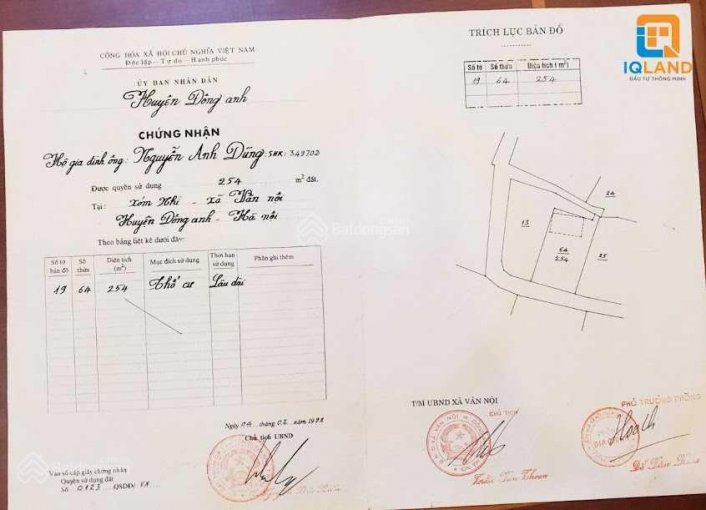 CỘNG HÒA XÃ HỘI CHỦ NGHĨA VIỆT NAM
Độc lập - Tự do - Hạnh phúc
ỦY BAN NHÂN DÂN
Huyện Đông anh
CHỨNG NHẬN
Hộ gia đình ông: Nguyễn Anh Dũng SHK: 349702
Được quyền sử dụng 254 m² đất.
Tại: Xóm Nhì - Xã Vân nội
Huyện Đông anh - Hà nội
Theo bảng liệt kê dưới đây:
Số tờ bản đồ Số thửa Diện tích (m²) Mục đích sử dụng Thời hạn sử dụng Phần ghi thêm
19 64 254 Thổ cư Lâu dài
Ngày 04 tháng 02 năm 1998
Chủ tịch UBND
Vào sổ cấp giấy chứng nhận
Quyền sử dụng đất
Số 0123 QSDĐ/
TRÍCH LỤC BẢN ĐỒ
Số tờ Số thửa Diện tích (m²)
19 64 254
24
13
64
254
25
T/M UBND XÃ VÂN NỘI
CHỦ TỊCH
PHÓ TRƯỞNG PHÒNG
IQLAND
ĐẦU TƯ THÔNG MINH
Batdongsan